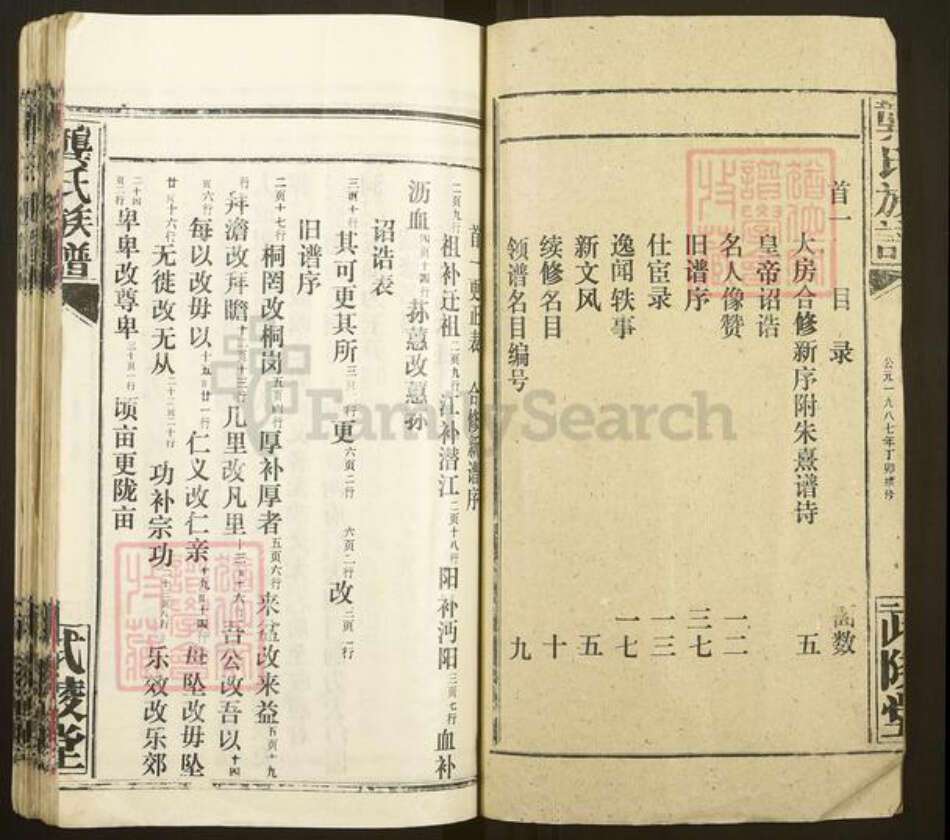 龚氏族谱
公元一九八七年丁卯续修
武陵堂
首一 目录 函数
大房合修新序附朱熹谱诗 五
皇帝诏诰
名人像赞 一二
旧谱序 三七
仕宦录 一三
逸闻轶事 一七
新文风 五
续修名目 十
领谱名目编号 九
首一更正表 合修新谱序
二页九行 祖补迁祖 二页九行 江补潜江 二页十八行 阳补沔阳 三页七行 血补
沥血 四页十四行 荪蕙改蕙荪
诏诰表
三页十行 其可更其所 三 行 更 六页二行 六页二行 改 二页一行
旧谱序
二页十七行 桐罔改桐岗 五页四行 厚补厚者 五页六行 来盆改来益 五页十九
行 拜澹改拜瞻 十一页十三行 几里改凡里 十三页十六行 吾公改吾以 十四
页六行 每以改毋以 十五页廿一行 仁义改仁亲 十九页十四行 母坠改毋坠
廿页十六行 无徙改无从 二十二页二十行 功补宗功 乐效改乐郊
二十四页二行 卑卑改尊卑 三十页一行 顷亩更陇亩
龚氏族谱
武陵堂
FamilySearch